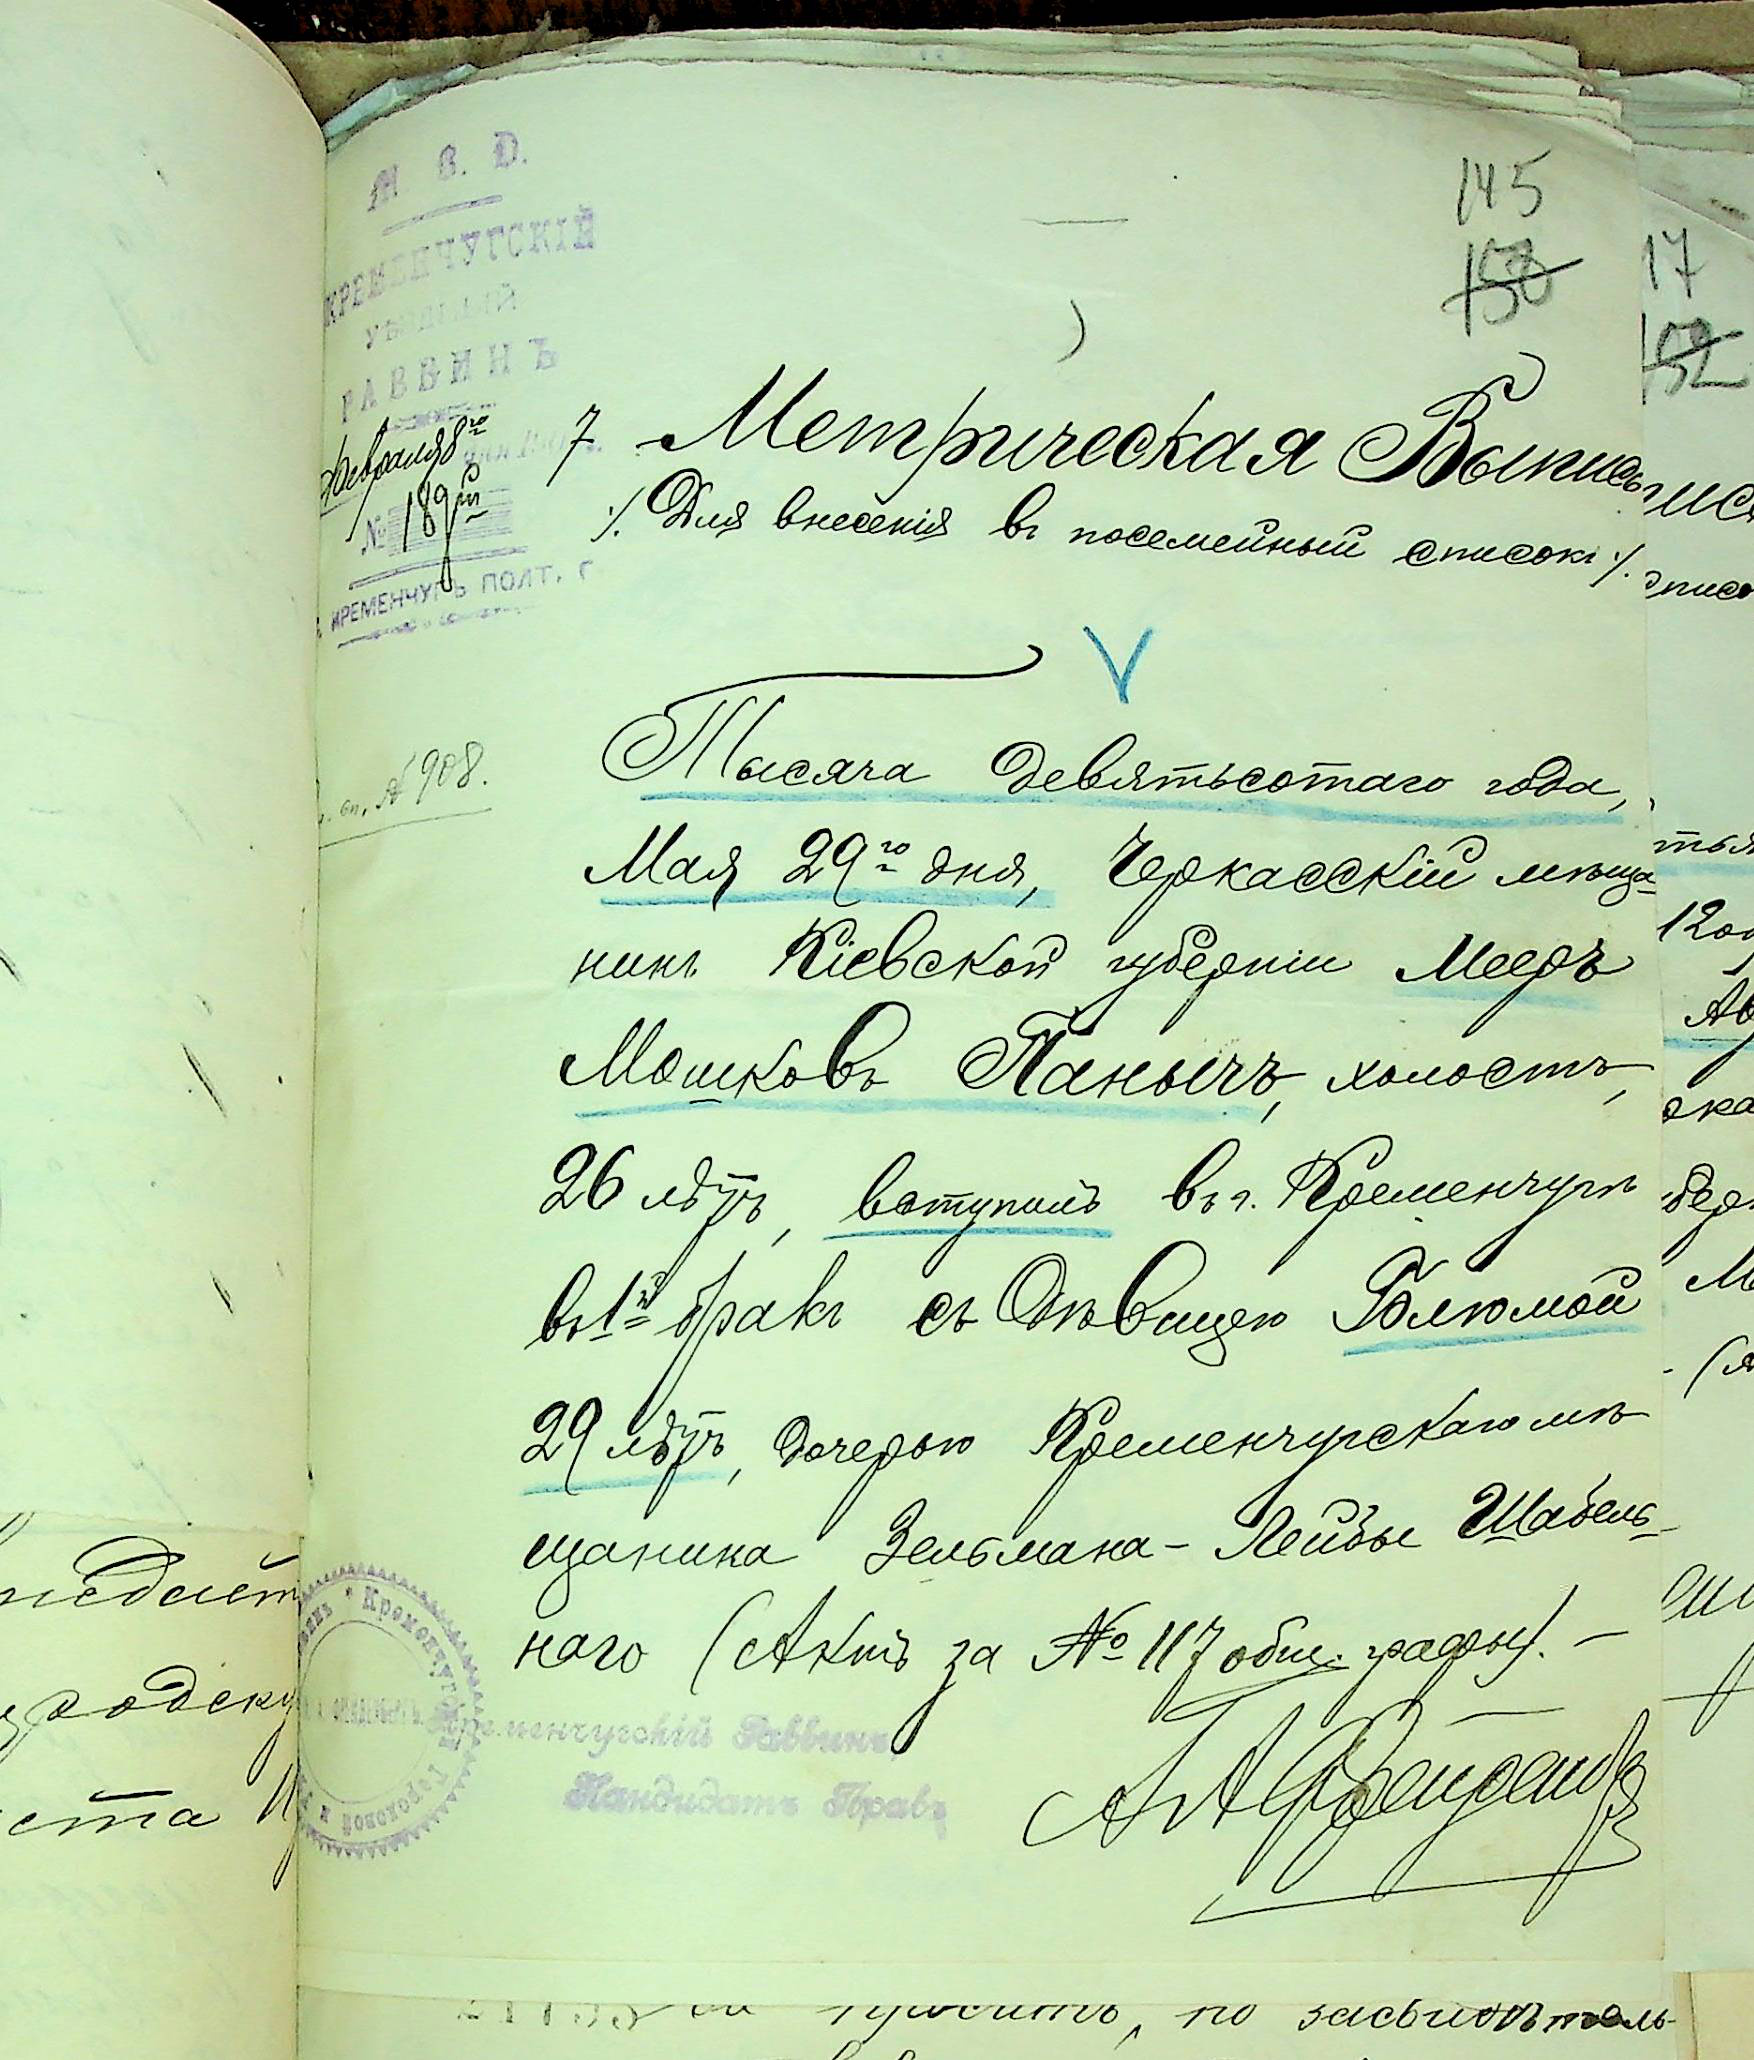 145
150
М. В. Д.
КРЕМЕНЧУГСКІЙ
УѢЗДНЫЙ
РАВВИНЪ
Февраля 8го
№ 189
КРЕМЕНЧУГЪ ПОЛТ. Г
17
152
Метрическая Выпись
·/. Для внесенія въ посемейный списокъ ·/.
сп. № 908.
Тысяча девятьсотаго года,
Мая 29го дня, Черкасскій мѣща-
нинъ Кіевской губерніи Мееръ
Мошковъ Панычъ, холостъ,
26 лѣтъ, вступилъ въ г. Кременчугѣ
въ 1й бракъ съ дѣвицею Блюмой
29 лѣтъ, дочерью Кременчугскаго мѣ-
щанина Зельмана-Лейбы Шабель-
наго (Актъ за № 117 общ. графы). —
Кременчугскій Раввинъ,
Кандидатъ Правъ